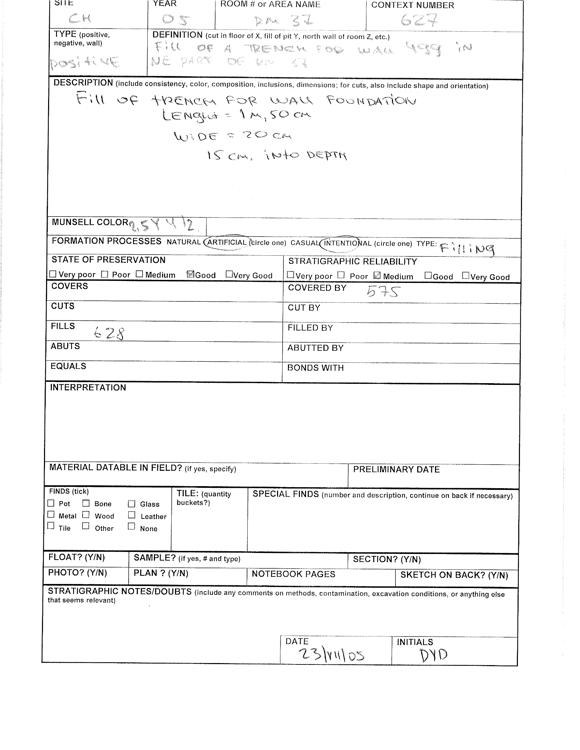 SITE YEAR ROOM # or AREA NAME CONTEXT NUMBER
CH 05 RM 37 627
TYPE (positive, negative, wall) DEFINITION (cut in floor of X, fill of pit Y, north wall of room Z, etc.)
positive Fill OF A TRENCH FOR WALL 499 IN
NE PART OF RM 37
DESCRIPTION (include consistency, color, composition, inclusions, dimensions; for cuts, also include shape and orientation)
Fill OF TRENCH FOR WALL FOUNDATION
LENGHT = 1M, 50 CM
WIDE = 20 CM
15 CM. INTO DEPTH
MUNSELL COLOR 2,5Y 4/2
FORMATION PROCESSES NATURAL ARTIFICIAL (circle one) CASUAL INTENTIONAL (circle one) TYPE: FilliNG
STATE OF PRESERVATION STRATIGRAPHIC RELIABILITY
☐Very poor ☐ Poor ☐ Medium ☑Good ☐Very Good ☐Very poor ☐ Poor ☑ Medium ☐Good ☐Very Good
COVERS COVERED BY 575
CUTS CUT BY
FILLS 628 FILLED BY
ABUTS ABUTTED BY
EQUALS BONDS WITH
INTERPRETATION
MATERIAL DATABLE IN FIELD? (if yes, specify) PRELIMINARY DATE
FINDS (tick) TILE: (quantity buckets?) SPECIAL FINDS (number and description, continue on back if necessary)
☐ Pot ☐ Bone ☐ Glass
☐ Metal ☐ Wood ☐ Leather
☐ Tile ☐ Other ☐ None
FLOAT? (Y/N) SAMPLE? (if yes, # and type) SECTION? (Y/N)
PHOTO? (Y/N) PLAN ? (Y/N) NOTEBOOK PAGES SKETCH ON BACK? (Y/N)
STRATIGRAPHIC NOTES/DOUBTS (include any comments on methods, contamination, excavation conditions, or anything else
that seems relevant)
DATE INITIALS
23/VII/05 DYD